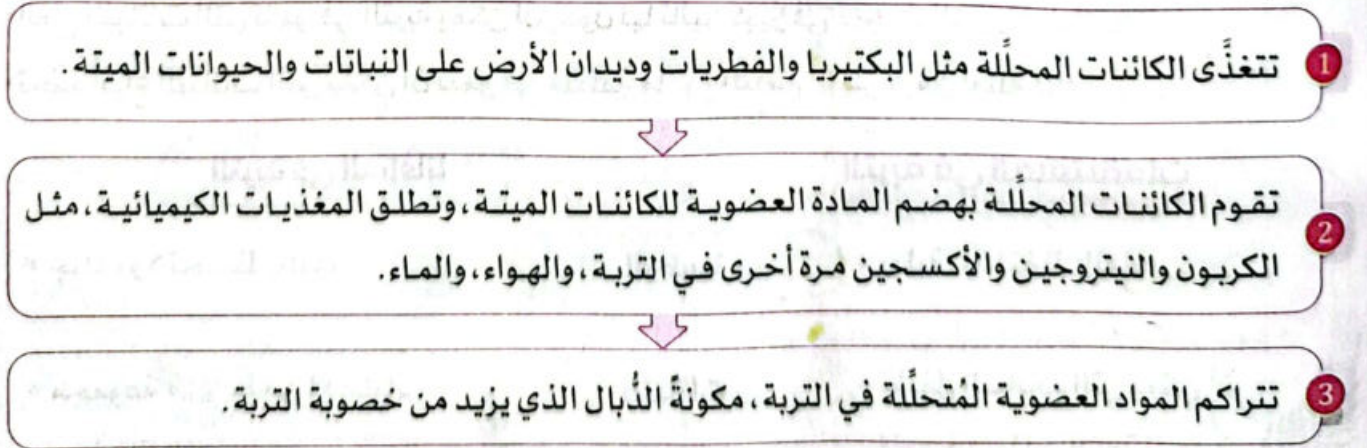 1 تتغذَّى الكائنات المحلِّلة مثل البكتيريا والفطريات وديدان الأرض على النباتات والحيوانات الميتة.
2 تقوم الكائنات المحلِّلة بهضم المادة العضوية للكائنات الميتة، وتطلق المغذيات الكيميائية، مثل
الكربون والنيتروجين والأكسجين مرة أخرى في التربة، والهواء، والماء.
3 تتراكم المواد العضوية المُتحلِّلة في التربة، مكونةً الدُّبال الذي يزيد من خصوبة التربة.